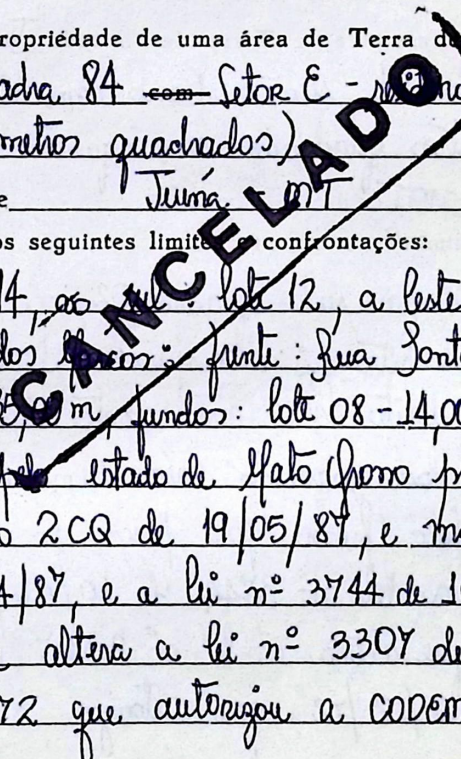 ropriedade de uma área de Terra d
adra 84 com Setor E - resid
metros quadrados)
e Juína - MT
os seguintes limites e confrontações:
14, ao sul: lote 12, a leste
dos Marcos: frente: Rua Sant
35,00 m, fundos: lote 08 - 14,0
pelo estado de Mato Grosso p
o 2CQ de 19/05/87, e m
4/87, e a lei nº 3744 de 1
altera a lei nº 3307 de
72 que autorizou a CODEM
CANCELADO